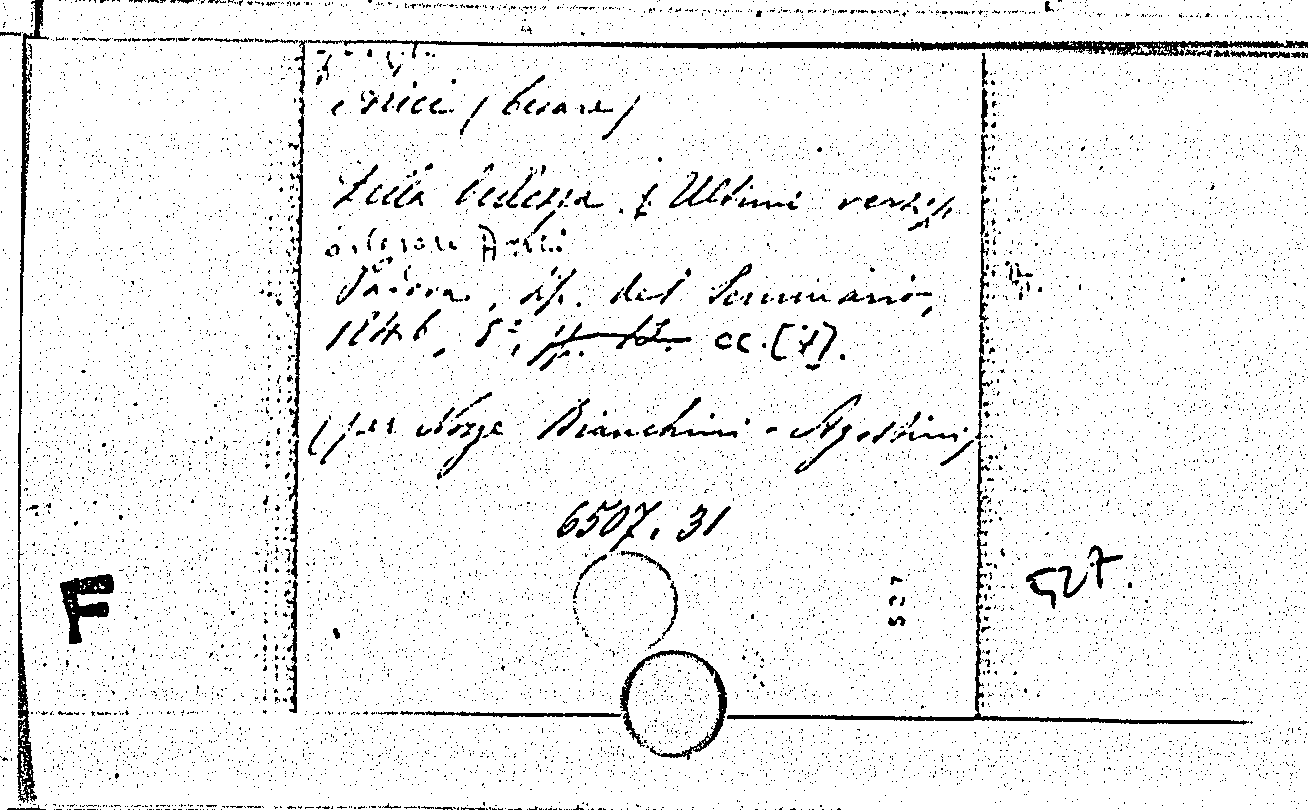 Arici (Cesare)
Della bellezza. { Ultimi versi
di Cesare Arici
Padova, tip. del Seminario,
1846, 8º, pp. 13. cc. [7].
(per Nozze Bianchini - Agostini)
6507. 31
F
527
527.